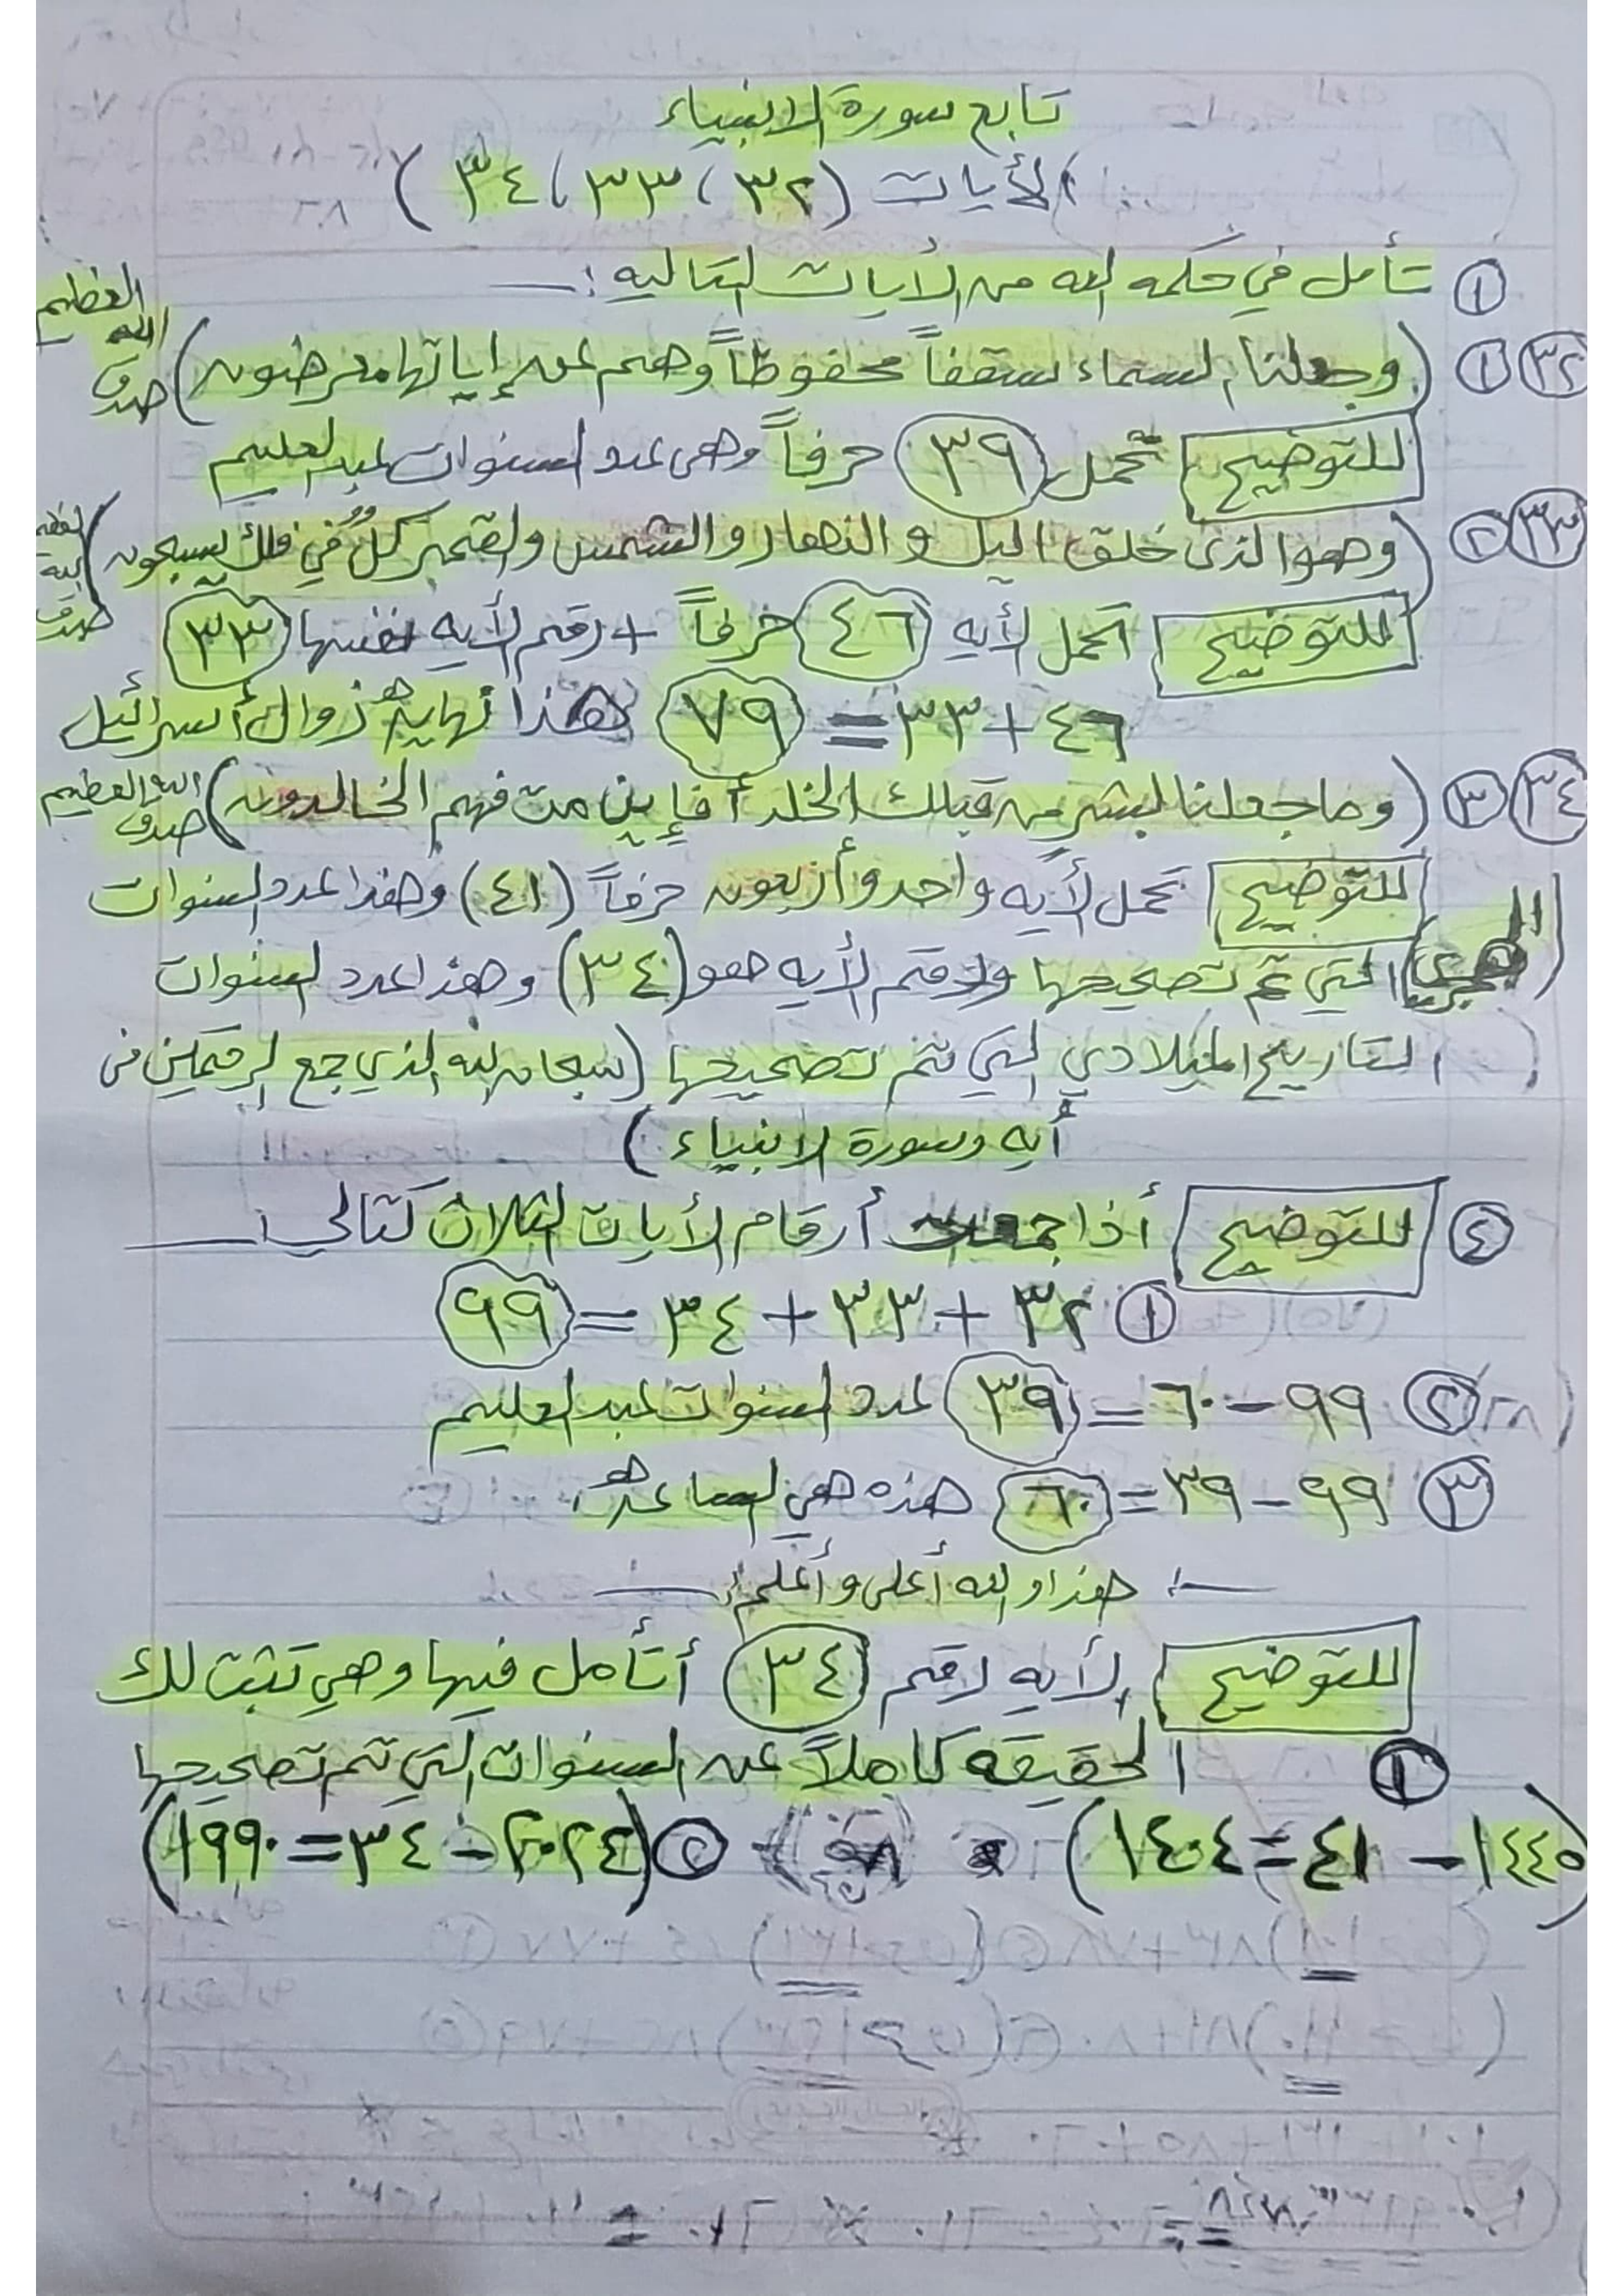 تابع سورة الانبياء
الأيات (٣٢، ٣٣، ٣٤)
① تأمل في حكمه الله من الأيات التاليه :ـ
٣٢ ① (وجعلنا السماء سقفاً محفوظاً وهم عن إياتها معرضون) صدق الله العظيم
للتوضيح تحمل ٣٩ حرفاً وهى عدد السنوات لعبد العليم
٣٣ ② (وهو الذى خلق اليل و النهار و الشمس والقمر كلٌ في فلك يسبحون) صدق الله العظيم
للتوضيح تحمل الأيه ٤٦ حرفاً + رقم الأيه نفسها ٣٣
٤٦+٣٣=٧٩ هذا نهاية زوال أسرائيل
٣٤ ③ (وما جعلنا لبشر من قبلك الخلد أفإين مت فهم الخالدون) صدق الله العظيم
للتوضيح تحمل الأيه واحد وأربعون حرفاً (٤١) وهذا عدد السنوات
الهجرى التي تم تصحيحها ورقم الأيه هو (٣٤) وهذا عدد السنوات
التاريخ الميلادي التي تم تصحيحها (سبحان الله الذي جمع الرقمين في
أيه وسورة الانبياء)
④ للتوضيح أذا جمعت أرقام الأيات الثلاث كتالي :ـ
① ٣٢+٣٣+٣٤=٩٩
② ٩٩-٦٠=٣٩ عدد السنوات لعبد العليم
③ ٩٩-٣٩=٦٠ هذه هي الساعة
ـ: هذا و الله أعلى و أعلم :ـ
للتوضيح الأيه رقم ٣٤ أتأمل فيها وهي تثبت لك
① الحقيقه كاملاً عن السنوات التي تم تصحيحها
(١٤٤٥-٤١=١٤٠٤) ② (٢٠٢٤-٣٤=١٩٩٠)